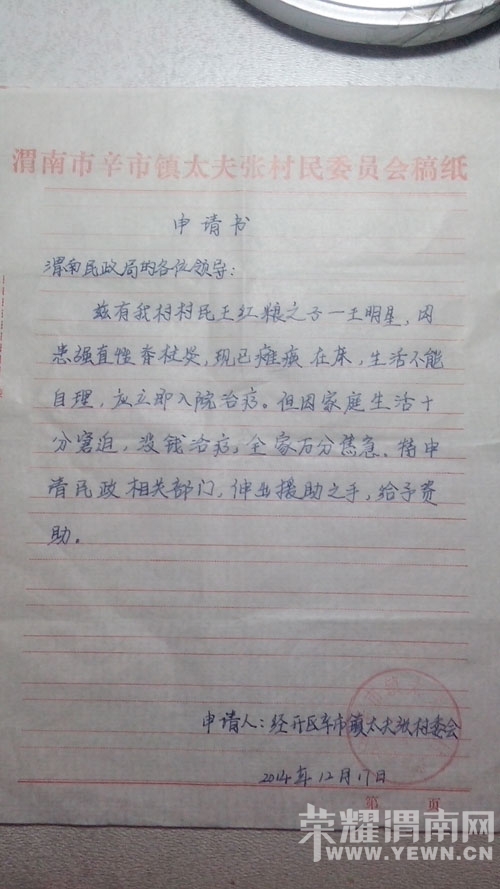 渭南市辛市镇太夫张村民委员会稿纸
申请书
渭南民政局的各位领导：
兹有我村村民王红粮之子一王明星，因
患强直性脊柱炎，现已瘫痪在床，生活不能
自理，应立即入院治疗。但因家庭生活十
分窘迫，没钱治疗，全家万分焦急。特申
请民政相关部门，伸出援助之手，给予资
助。
申请人：经开区辛市镇太夫张村委会
2014年12月17日
第 页
荣耀渭南网
WWW.YEWN.CN